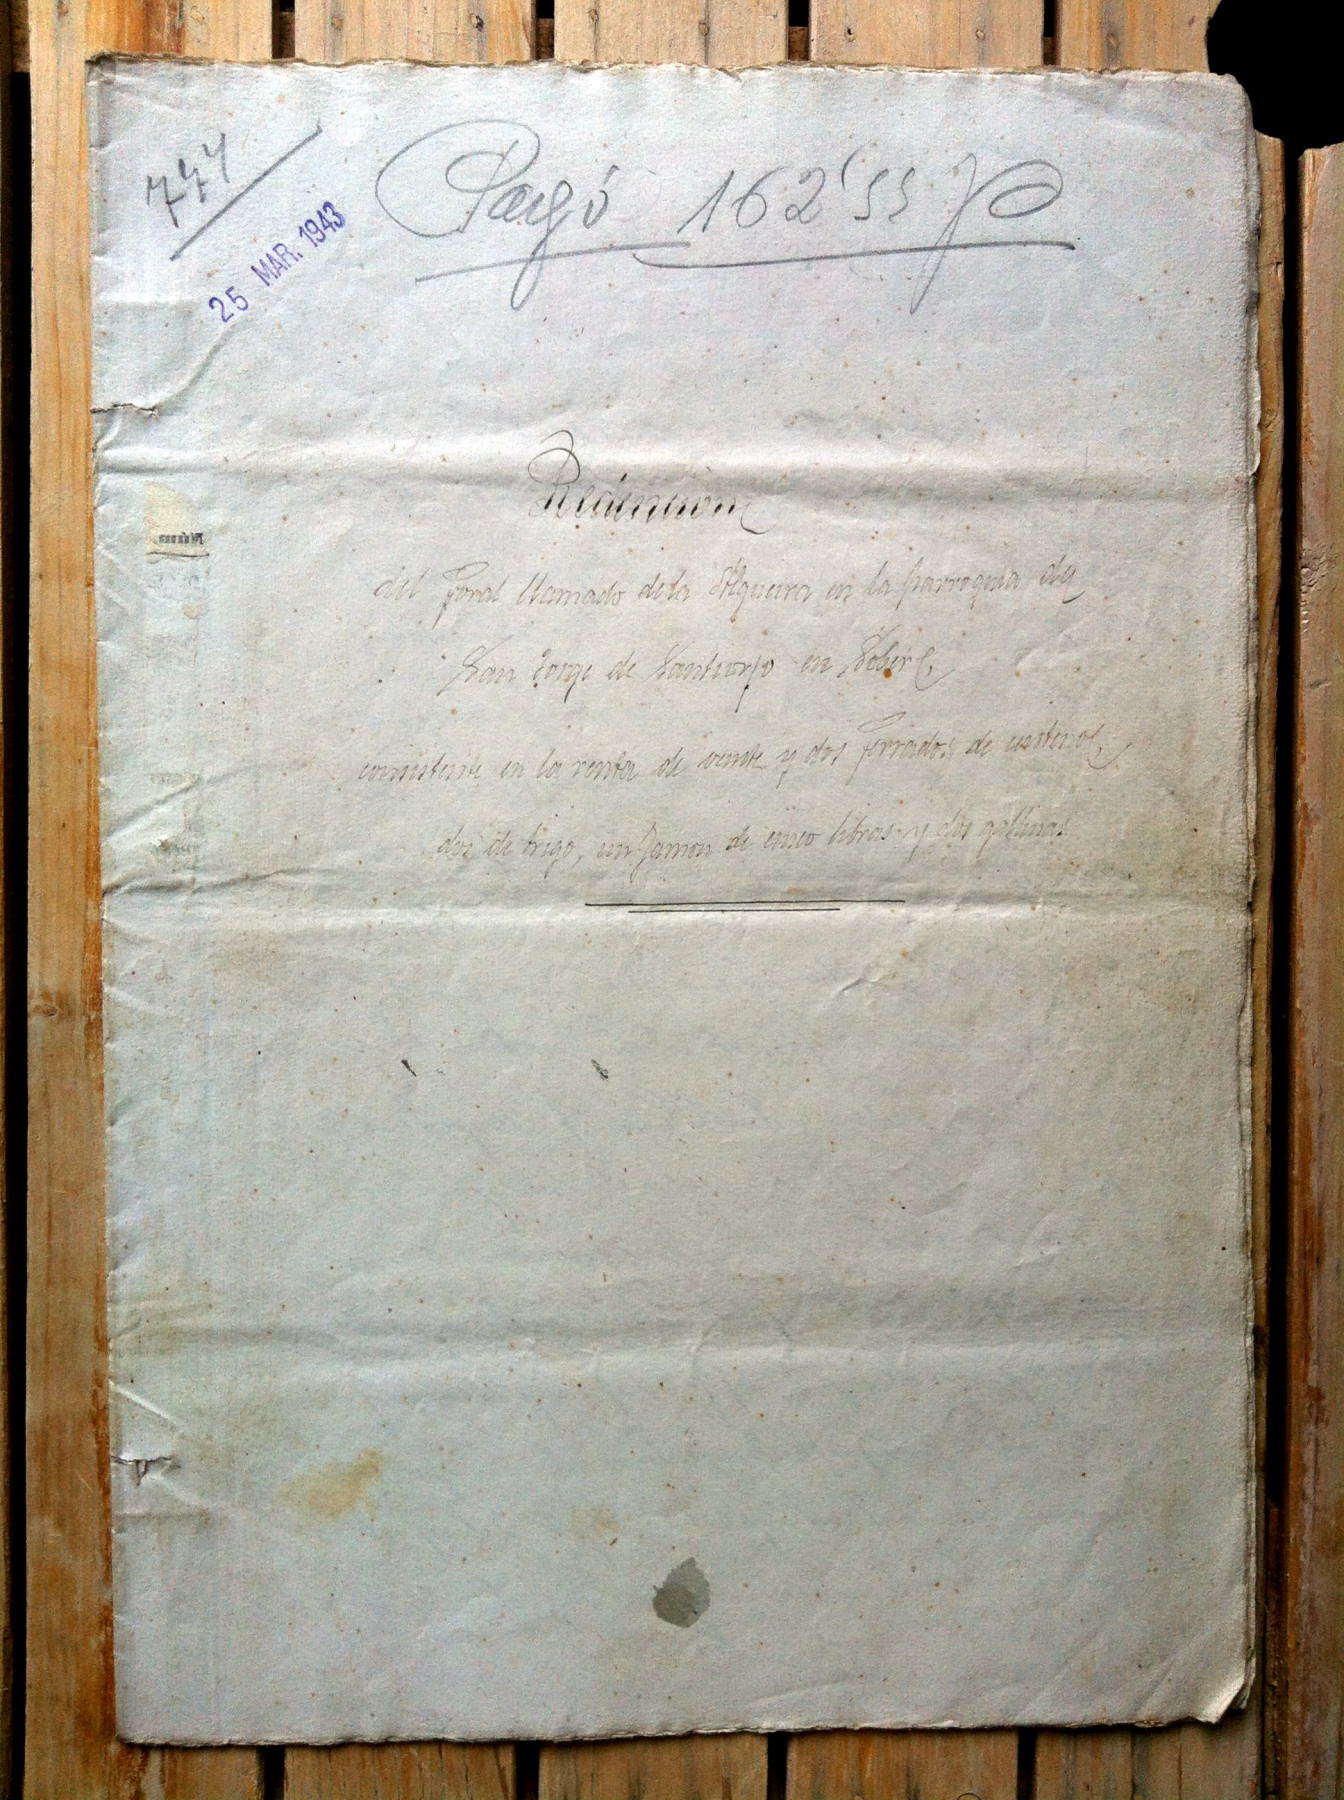 777
25 MAR. 1943
Pagó 162'55
Redencion
del foral llamado de la Algueira en la parroquia de
San Jorge de Santiorjo en Sober,
consistente en la renta de veinte y dos ferrados de centeno,
dos de trigo, un jamon de cinco libras y dos gallinas